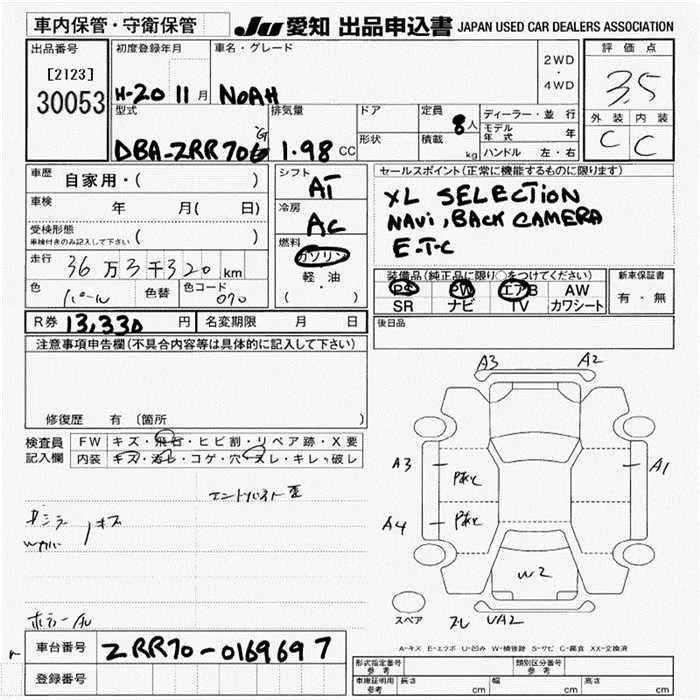 車内保管・守衛保管
JU 愛知 出品申込書 JAPAN USED CAR DEALERS ASSOCIATION
出品番号
[2123]
30053
初度登録年月
H-20 11 月
車名・グレード
NOAH
2WD
・
4WD
評価点
3.5
外装 内装
C C
型式
DBA-ZRR70G
'G
排気量
1.98 CC
ドア
形状
定員
8 人
積載
kg
ディーラー・並行
モデル年式 年
ハンドル 左・右
車歴 自家用・( )
車検 年 月( 日)
受検形態
車検付きのみ記入して下さい ( )
走行 36 万 3 千 320 km
色 パール 色替
色コード 070
シフト
AT
冷房
AC
燃料
ガソリン
・
軽油
( )
セールスポイント(正常に機能するものに限ります)
XL SELECTION
NAVI, BACK CAMERA
E-T-C
装備品(純正品に限り○をつけてください)
PS PW エアB AW
SR ナビ TV カワシート
新車保証書
有・無
R券 13,330 円 名変期限 月 日
後日品
注意事項申告欄(不具合内容等は具体的に記入して下さい)
修復歴 有 〔箇所 〕
検査員
記入欄
FW キズ・飛石・ヒビ割・リペア跡・X要
内装 キズ・汚レ・コゲ・穴・スレ・キレ・破レ
キズ
A3 A2
A3 A1
A4
W2
スペア UA2
A-キズ E-エクボ U-凹み W-補修跡 S-サビ C-腐食 XX-交換済
車台番号 ZRR70-0169697
登録番号
形式指定番号
参考
類別区分番号
参考
車庫証明用
参考
長さ cm 幅 cm 高さ cm